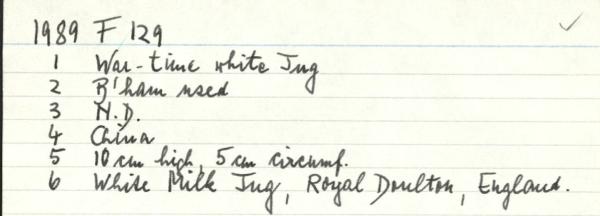 1989 F 129
1 War-time white Jug
2 B'ham used
3 N.D.
4 China
5 10 cm high, 5 cm circumf.
6 White Milk Jug, Royal Doulton, England.